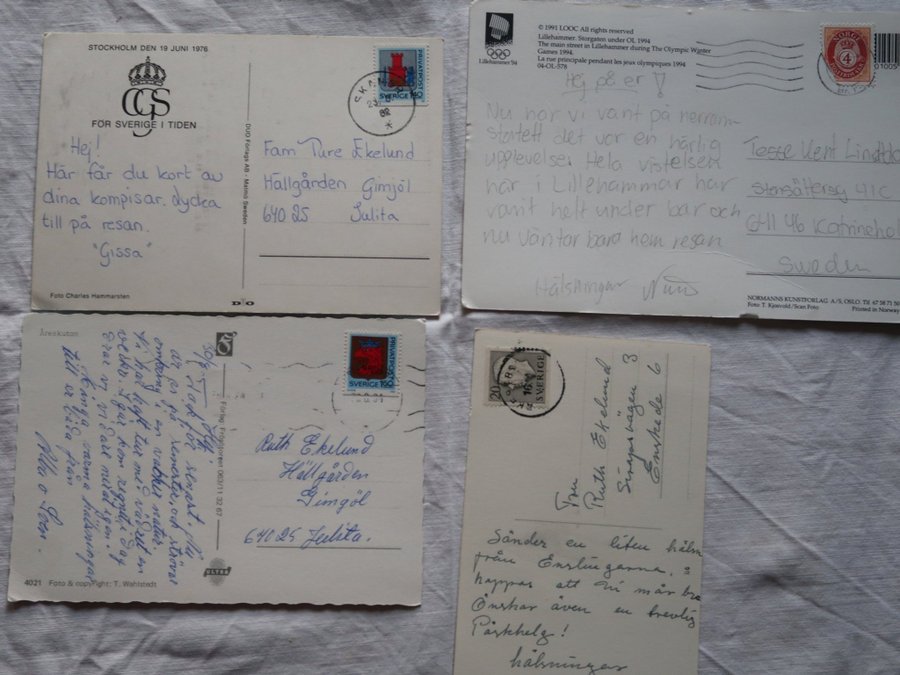 STOCKHOLM DEN 19 JUNI 1976
CGS
FÖR SVERIGE I TIDEN
Hej!
Här får du kort av
dina kompisar. Lycka
till på resan.
"Gissa"
Foto Charles Hammarsten
DUO Förlags AB - Malmö Sweden
DUO
PRIVATPOST
SVERIGE 160
Fam Ture Ekelund
Hällgården Gimjöl
640 25 Julita
© 1991 LOOC All rights reserved
Lillehammer. Storgaten under OL 1994
The main street in Lillehammer during The Olympic Winter
Games 1994.
La rue principale pendant les jeux olympiques 1994
04-OL-578
Lillehammer '94
NORGE
4
Hej på er!
Nu har vi varit på herrarn-
startett det var en härlig
upplevelse. Hela vistelsen
här i Lillehammar har
varit helt under bar och
nu väntar bara hem resan
Hälsningar
Kent
41C
641 46 Katrineho
Sweden
NORMANNS KUNSTFORLAG A/S, OSLO. Tlf 67 58 71 50
Foto: T. Kjosvold/Scan Foto
Printed in Norway
Åreskutan
Hej!
Tack för senast. Nu
är vi på semester och strövar
omkring i en vacker natur.
Vi har haft tur med vädret en
vecka. Igår kom regnet. I dag
drar vi vidare
Många varma hälsningar
till er båda från
Ulla o Sven.
4021 Foto & copyright: T. Wahlstedt
Förlag: Fotogatan 063/11 32 67
ULTRA
PRIVATPOST
SVERIGE 160
Ruth Ekelund
Hällgården
Gimgöl
640 25 Julita.
20
SVERIGE
Fru
Ruth Ekelund
3
Enskede 6
Sänder en liten hälsn
från
hoppas att Ni mår bra
Önskar även en trevlig
Påskhelg!
hälsningar